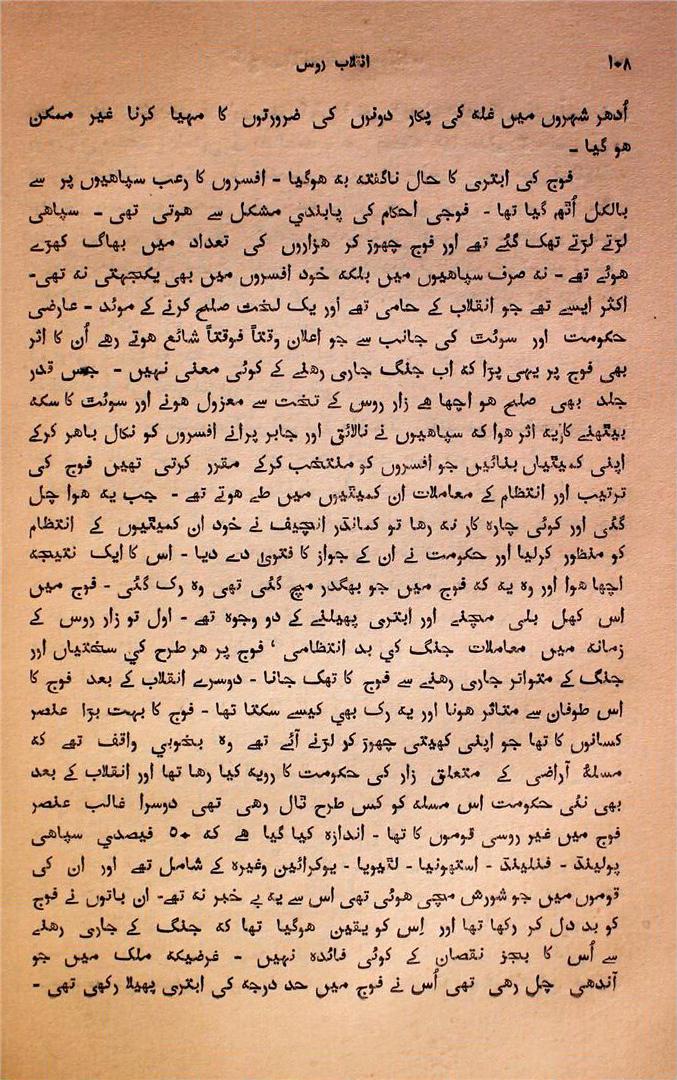 ۱۰۸ انقلاب روس
اُدھر شہروں میں غلہ کی پکار دونوں کی ضرورتوں کا مہیا کرنا غیر ممکن
ہو گیا -
فوج کی ابتری کا حال ناگفتہ بہ ہوگیا - افسروں کا رعب سپاہیوں پر سے
بالکل اُٹھ گیا تھا - فوجی احکام کی پابندی مشکل سے ہوتی تھی - سپاہی
لڑتے لڑتے تھک گئے تھے اور فوج چھوڑ کر ہزاروں کی تعداد میں بھاگ کھڑے
ہوئے تھے - نہ صرف سپاہیوں میں بلکہ خود افسروں میں بھی یکجہتی نہ تھی-
اکثر ایسے تھے جو انقلاب کے حامی تھے اور یک لخت صلح کرنے کے موئد - عارضی
حکومت اور سوئت کی جانب سے جو اعلان وقتاً فوقتاً شائع ہوتے رہے اُن کا اثر
بھی فوج پر یہی پڑا کہ اب جنگ جاری رہنے کے کوئی معنی نہیں - جس قدر
جلد بھی صلح ہو اچھا ہے زار روس کے تخت سے معزول ہونے اور سوئت کا سکہ
بیٹھنے کا یہ اثر ہوا کہ سپاہیوں نے نالائق اور جابر پرانے افسروں کو نکال باہر کرکے
اپنی کمیٹیاں بنائیں جو افسروں کو منتخب کرکے مقرر کرتی تھیں فوج کی
ترتیب اور انتظام کے معاملات ان کمیٹیوں میں طے ہوتے تھے - جب یہ ہوا چل
گئی اور کوئی چارہ کار نہ رہا تو کمانڈر انچیف نے خود ان کمیٹیوں کے انتظام
کو منظور کرلیا اور حکومت نے ان کے جواز کا فتویٰ دے دیا - اس کا ایک نتیجہ
اچھا ہوا اور وہ یہ کہ فوج میں جو بھگدر مچ گئی تھی وہ رک گئی - فوج میں
اس کھل بلی مچنے اور ابتری پھیلنے کے دو وجوہ تھے - اول تو زار روس کے
زمانہ میں معاملات جنگ کی بد انتظامی ‘ فوج پر ہر طرح کی سختیاں اور
جنگ کے متواتر جاری رہنے سے فوج کا تھک جانا - دوسرے انقلاب کے بعد فوج کا
اس طوفان سے متاثر ہونا اور یہ رک بھی کیسے سکتا تھا - فوج کا بہت بڑا عنصر
کسانوں کا تھا جو اپنی کھیتی چھوڑ کو لڑنے آئے تھے وہ بخوبی واقف تھے کہ
مسئلۂ آراضی کے متعلق زار کی حکومت کا رویہ کیا رہا تھا اور انقلاب کے بعد
بھی نئی حکومت اس مسئلہ کو کس طرح ٹال رہی تھی دوسرا غالب عنصر
فوج میں غیر روسی قوموں کا تھا - اندازہ کیا گیا ہے کہ ۵۰ فیصدی سپاہی
پولینڈ - فنلینڈ - استھونیا - لٹیویا - یوکرائین وغیرہ کے شامل تھے اور ان کی
قوموں میں جو شورش مچی ہوئی تھی اس سے یہ بے خبر نہ تھے- ان باتوں نے فوج
کو بد دل کر رکھا تھا اور اِس کو یقین ہوگیا تھا کہ جنگ کے جاری رہنے
سے اُس کا بجز نقصان کے کوئی فائدہ نہیں - غرضیکہ ملک میں جو
آندھی چل رہی تھی اُس نے فوج میں حد درجہ کی ابتری پھیلا رکھی تھی -